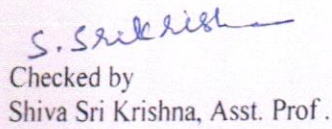 S. Srikrishna
Checked by
Shiva Sri Krishna, Asst. Prof.